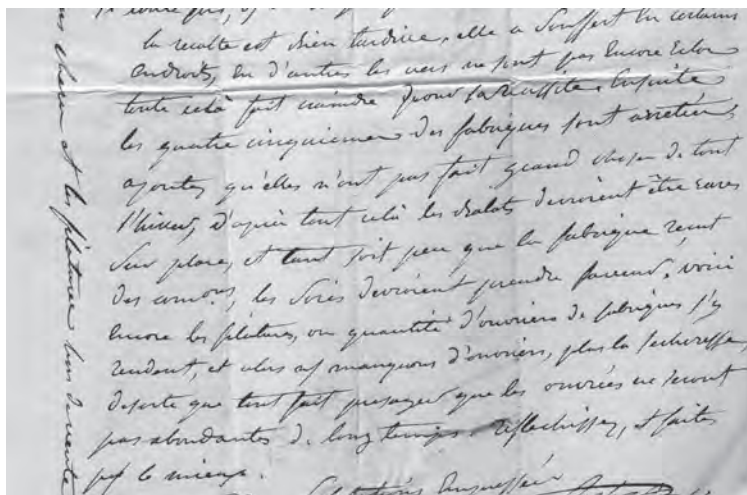 la recolte est bien tardive, elle a souffert en certains
endroits, en d'autres les vers ne sont pas encore eclos
toute cela fait craindre pour sa reussite. Ensuite
les quatre cinquiemes des fabriques sont arretées,
ajoutez qu'elles n'ont pas fait grand chose de tout
l'hiver, D'après tout celà les achats devroient être rares
sur place, et tant soit peu que la fabrique recut
des comons, les soies devroient prendre faveur, voici
encore les filatures, ou quantité d'ouvriers de fabriques s'y
rendent, et alors manquons d'ouvriers, plus la secheresse,
desorte que tout fait presager que les ouvrées ne seront
pas abondantes de long temps. reflechissez, et faites
le mieux.
Salutations Empressées
et les filatures